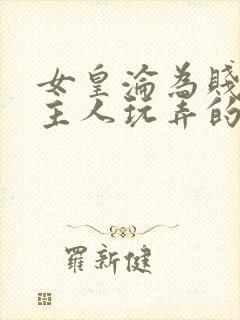 女皇淪為賤
主人玩弄的
羅新健